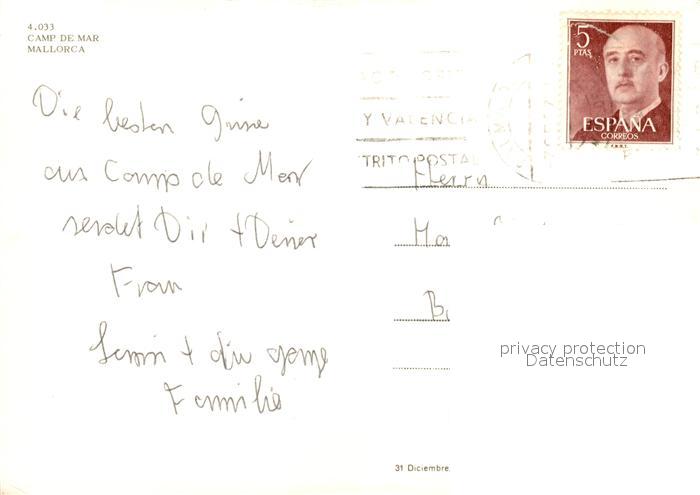 4.033
CAMP DE MAR
MALLORCA
5
PTAS
ESPAÑA
CORREOS
F.N.M.T.
Y VALENCIA
TRITO POSTAL
Die besten Grüsse
aus Camp de Mar
sendet Dir + Deiner
Frau
+ die ganze
Familie
Herrn
privacy protection
Datenschutz
31 Diciembre